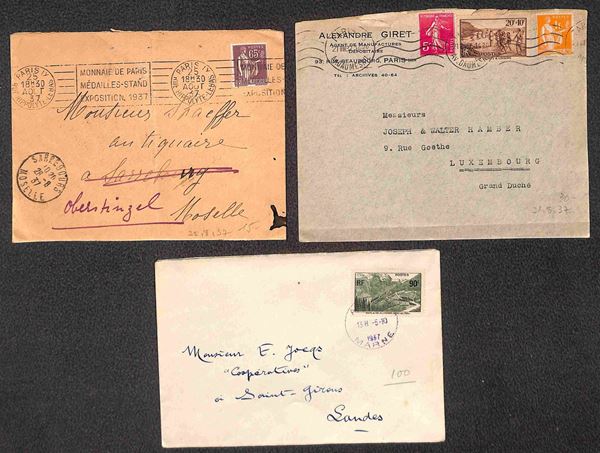 PARIS IV
25
18H30
AOUT
37
MONNAIE DE PARIS
MÉDAILLES-STAND
EXPOSITION 1937
PARIS IV
18H30
AOUT
65
Monsieur Schaeffer
antiquaire
à Sarrebourg
Oberstinzel Moselle
SARREBOURG
26-8
37
MOSELLE
25.8.37
15-
ALEXANDRE GIRET
AGENT DE MANUFACTURES
DÉPOSITAIRE
93, RUE BEAUBOURG, PARIS
TÉL : ARCHIVES 40-64
20c+10c
Messieurs
JOSEPH & WALTER HAMBER
9, Rue Goethe
LUXEMBOURG
Grand Duché
30-
21.8.37
RF
POSTES
90c
1937
MARNE
Monsieur E. Joegs
"Coopératives"
à Saint-Girons
Landes
100